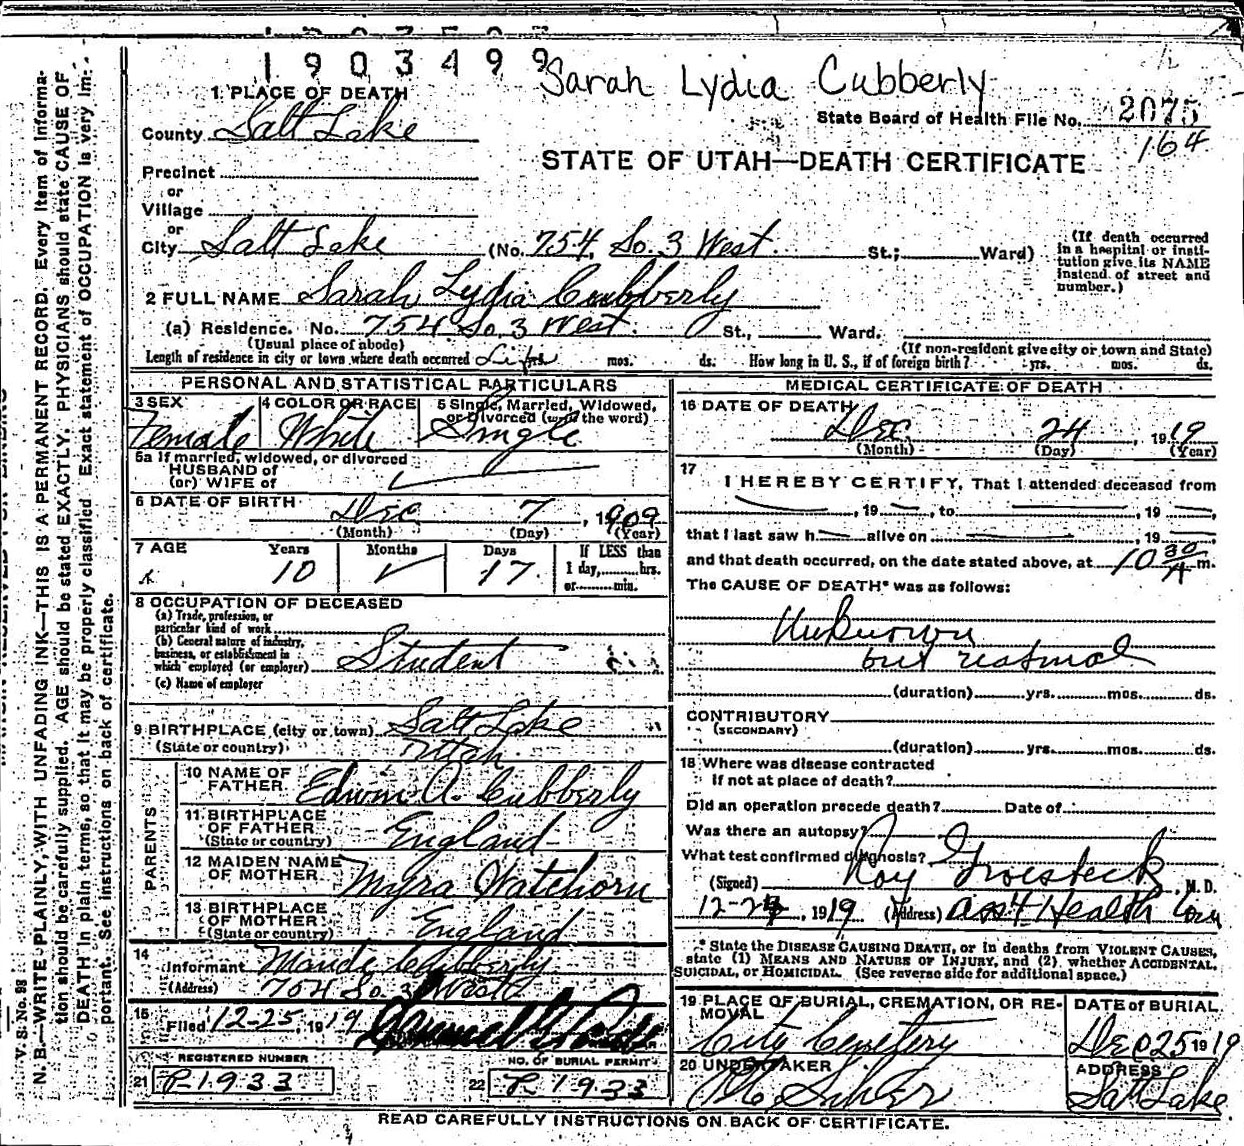 1903499
Sarah Lydia Cubberly
1 PLACE OF DEATH
County Salt Lake
State Board of Health File No. 2075
164
STATE OF UTAH—DEATH CERTIFICATE
Precinct
or
Village
or
City Salt Lake (No. 754 So. 3 West St.; Ward)
(If death occurred in a hospital or institution give its NAME instead of street and number.)
2 FULL NAME Sarah Lydia Cubberly
(a) Residence. No. 754 So 3 West. St., Ward.
(Usual place of abode) (If non-resident give city or town and State)
Length of residence in city or town where death occurred Life yrs. mos. ds. How long in U. S., if of foreign birth? yrs. mos. ds.
PERSONAL AND STATISTICAL PARTICULARS
3 SEX Female
4 COLOR OR RACE White
5 Single, Married, Widowed, or Divorced (write the word) Single
5a If married, widowed, or divorced
HUSBAND of
(or) WIFE of
6 DATE OF BIRTH Dec 7, 1909
(Month) (Day) (Year)
7 AGE Years Months Days If LESS than
10 17 1 day, hrs.
or min.
8 OCCUPATION OF DECEASED
(a) Trade, profession, or
particular kind of work
(b) General nature of industry,
business, or establishment in
which employed (or employer) Student
(c) Name of employer
9 BIRTHPLACE (city or town) Salt Lake
(State or country) Utah
PARENTS
10 NAME OF FATHER Edwin A. Cubberly
11 BIRTHPLACE OF FATHER England
(State or country)
12 MAIDEN NAME OF MOTHER Myra Watchorn
13 BIRTHPLACE OF MOTHER England
(State or country)
14
Informant Maude Cubberly
(Address) 704 So 3 West
15
Filed 12-25, 1919
REGISTERED NUMBER
21 P-1933
NO. OF BURIAL PERMIT
22 P 1933
MEDICAL CERTIFICATE OF DEATH
16 DATE OF DEATH
Dec 24, 1919
(Month) (Day) (Year)
17
I HEREBY CERTIFY, That I attended deceased from
, 19 , to , 19 ,
that I last saw h alive on , 19
and that death occurred, on the date stated above, at 10 30 A m.
The CAUSE OF DEATH* was as follows:
Unknown
but natural
(duration) yrs. mos. ds.
CONTRIBUTORY
(SECONDARY)
(duration) yrs. mos. ds.
18 Where was disease contracted
If not at place of death?
Did an operation precede death? Date of
Was there an autopsy?
What test confirmed diagnosis?
(Signed) Roy Groesbeck, M. D.
12-24, 1919 (Address) Asst Health Com
* State the DISEASE CAUSING DEATH, or in deaths from VIOLENT CAUSES,
state (1) MEANS AND NATURE OF INJURY, and (2) whether ACCIDENTAL,
SUICIDAL, or HOMICIDAL. (See reverse side for additional space.)
19 PLACE OF BURIAL, CREMATION, OR REMOVAL
City Cemetery
DATE of BURIAL
Dec 25 1919
20 UNDERTAKER
ADDRESS
Salt Lake
READ CAREFULLY INSTRUCTIONS ON BACK OF CERTIFICATE.
V. S. No. 98
N. B.—WRITE PLAINLY, WITH UNFADING INK—THIS IS A PERMANENT RECORD. Every item of information should be carefully supplied. AGE should be stated EXACTLY. PHYSICIANS should state CAUSE OF
DEATH in plain terms, so that it may be properly classified. Exact statement of OCCUPATION is very important. See instructions on back of certificate.